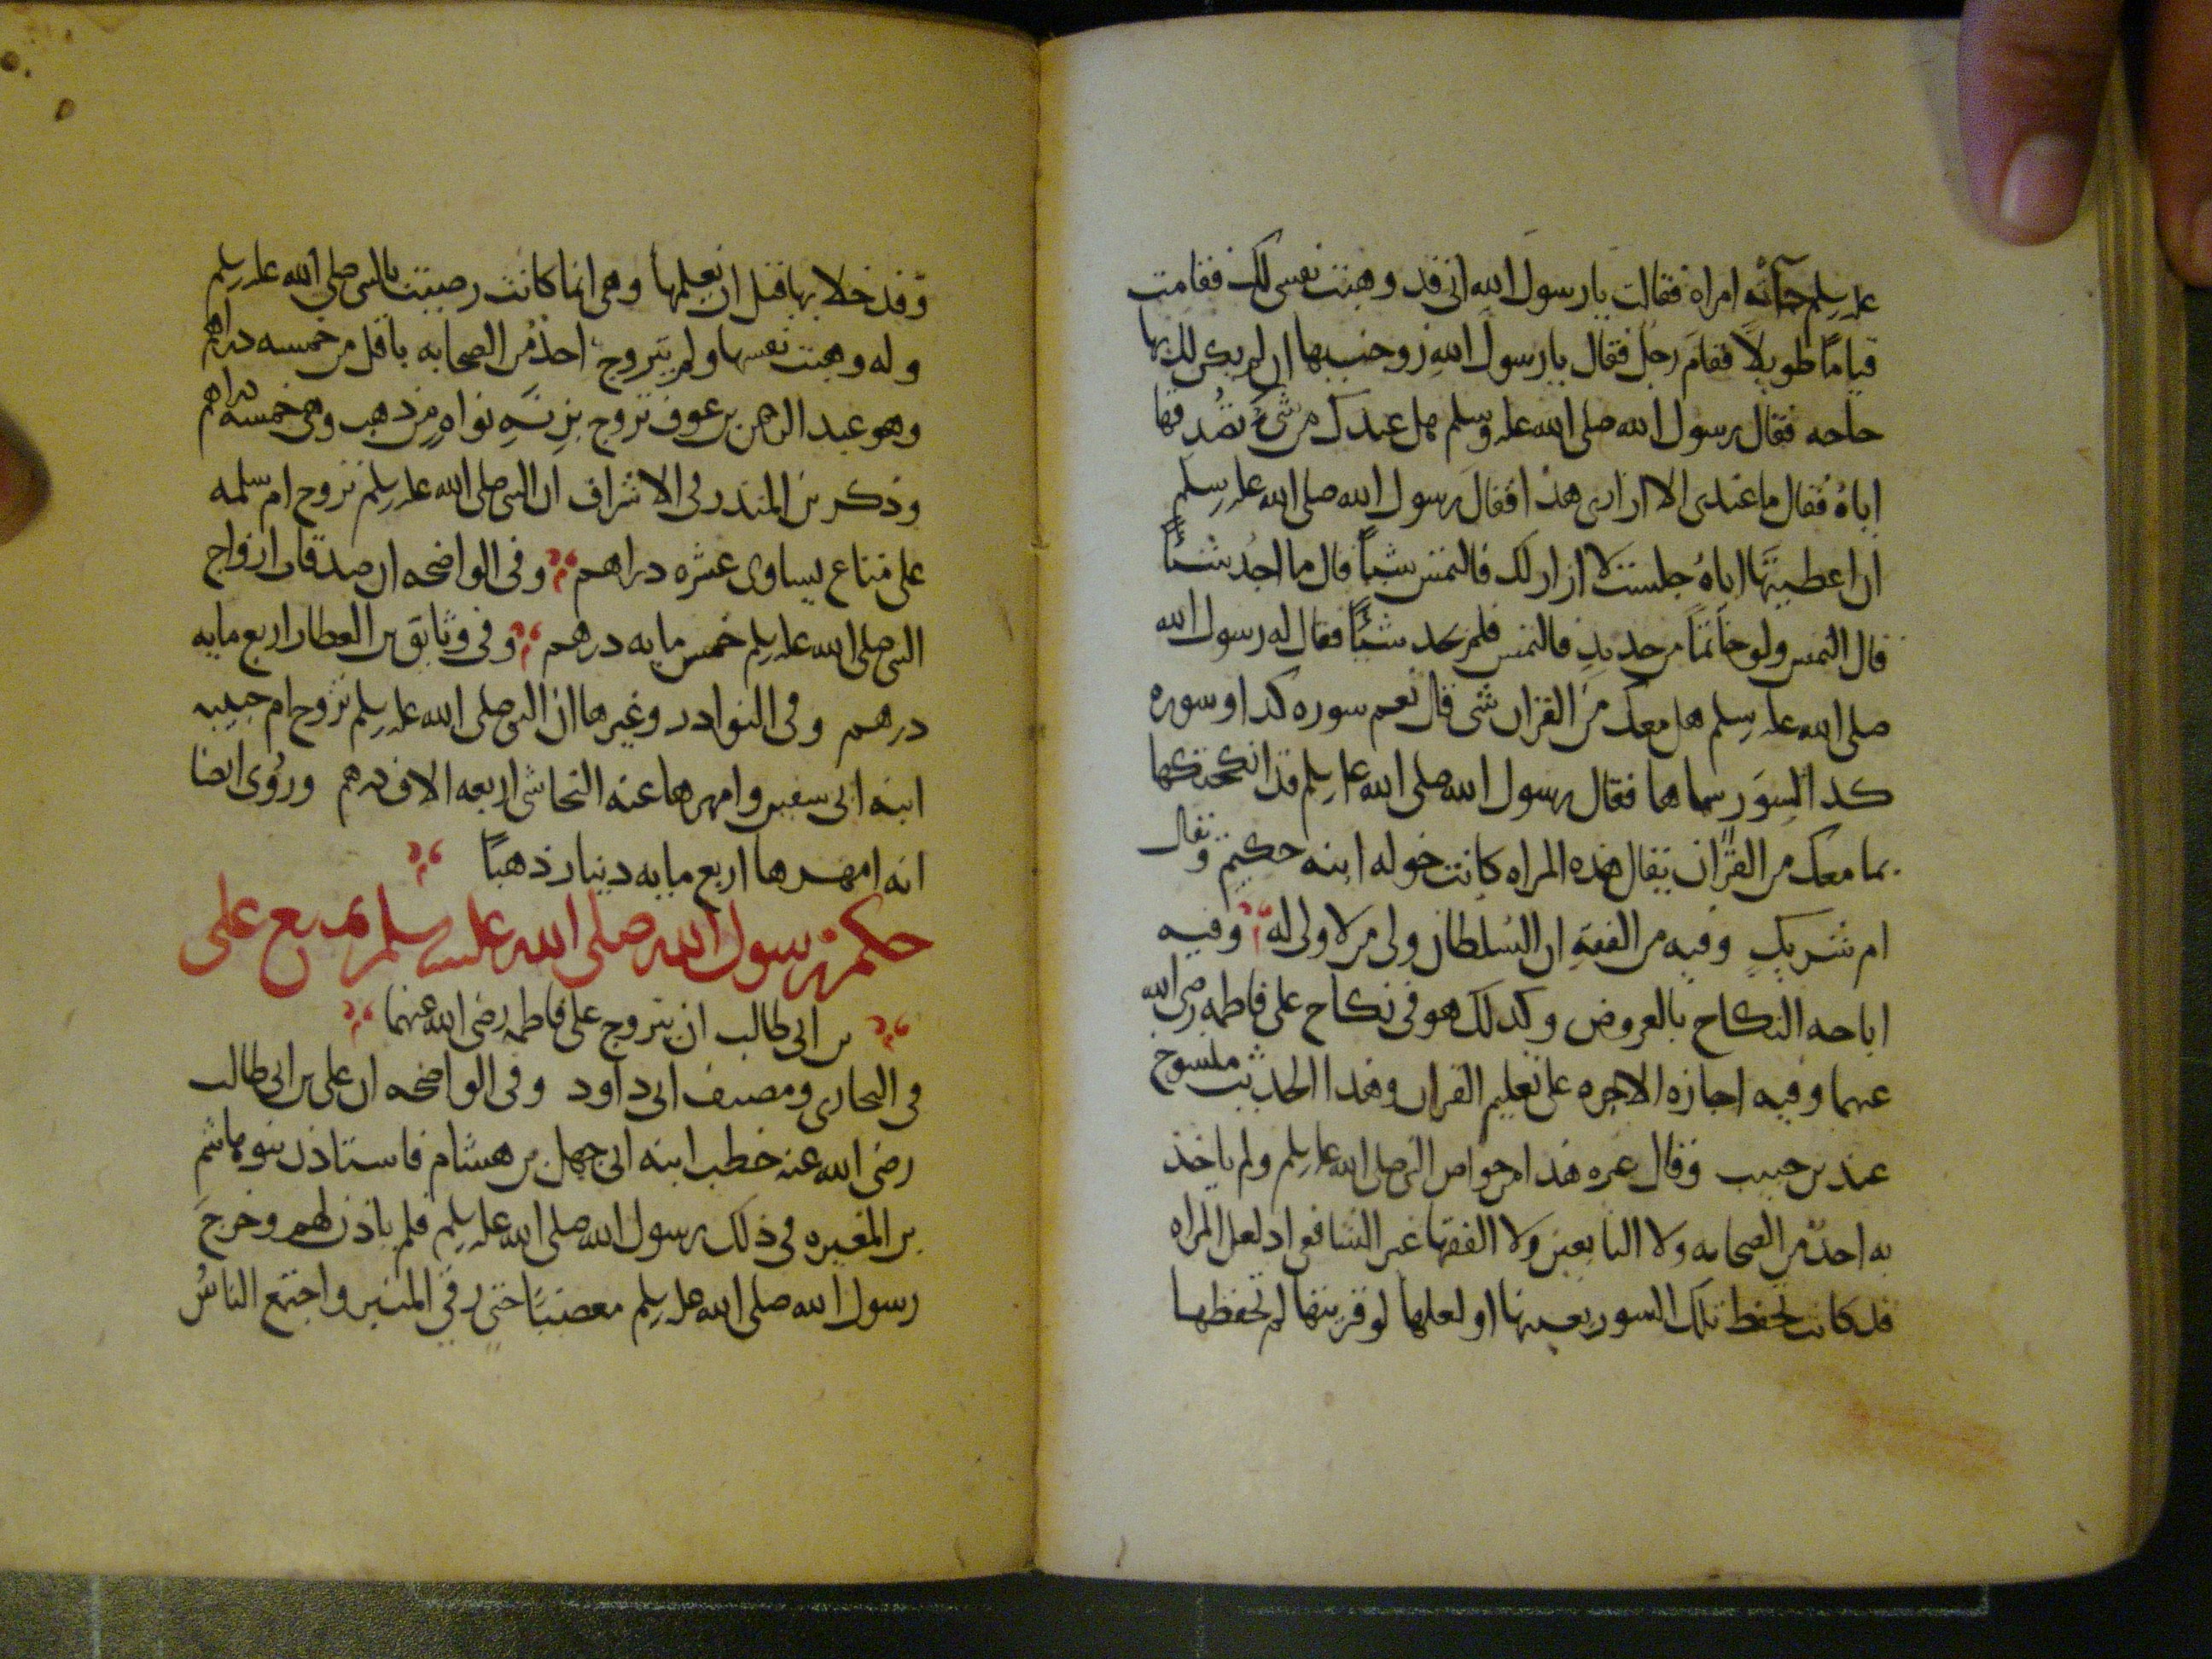 عليه وسلم جآته امراه فقالت يا رسول الله انى قد وهبت نفسى لك فقامت
قياما طويلا فقام رجل فقال يا رسول الله زوجنيها ان لم يكن لك بها
حاجه فقال رسول الله صلى الله عليه وسلم هل عندك من شئ تصدقها
اياه فقال ما عندى الا ازارى هذا فقال رسول الله صلى الله عليه وسلم
ان اعطيتها اياه جلست لا ازار لك فالتمس شيئا قال ما اجد شيئا
قال التمس ولو خاتما من حديد فالتمس فلم يجد شيئا فقال له رسول الله
صلى الله عليه وسلم هل معك من القران شى قال نعم سوره كذا وسوره
كذا لسور سماها فقال رسول الله صلى الله عليه وسلم قد انكحتكها
بما معك من القران يقال هذه المراه كانت خوله ابنه حكيم ويقال
ام شريك وفيه من الفقه ان السلطان ولى من لا ولى له وفيه
اباحه النكاح بالعروض وكذلك هو فى نكاح على فاطمه رضى الله
عنهما وفيه اجازه الاجره على تعليم القران وهذا الحديث منسوخ
عند بن حبيب وقال غيره هذا من خواص النبى صلى الله عليه وسلم ولم ياخذ
به احد من الصحابه ولا التابعين ولا الفقها غير الشافعى اذ لعل المراه
قد كانت تحفظ تلك السور بعينها او لعلها لو قرينها لم تحفظها
وقد خلا بها قبل ان يعلمها وهى انما كانت رضيت بالنبى صلى الله عليه وسلم
وله وهبت نفسها ولم يتزوج احد من الصحابه باقل من خمسه دراهم
وهو عبد الرحمن بن عوف تزوج بزنة نواه من ذهب وهى خمسه دراهم
وذكر بن المنذر فى الاشراف ان النبى صلى الله عليه وسلم تزوج ام سلمه
على متاع يساوى عشره دراهم وفى الواضحه ان صدقات ازواج
النبى صلى الله عليه وسلم خمس مايه درهم وفى وثايق بن العطار اربع مايه
درهم وفى النوادر وغيرها ان النبى صلى الله عليه وسلم تزوج ام حبيبه
ابنه ابى سفين وامهرها عنه النجاشى اربعه الاف درهم وروى ايضا
انه امهرها اربع مايه دينار ذهبا
حكم رسول الله صلى الله عليه وسلم بمنع على
بن ابى طالب ان يتزوج على فاطمه رضى الله عنهما
فى البخارى ومصنف ابى داود وفى الواضحه ان على بن ابى طالب
رضى الله عنه خطب ابنه ابى جهل بن هشام فاستاذن بنو هاشم
بن المغيره فى ذلك رسول الله صلى الله عليه وسلم فلم ياذن لهم وخرج
رسول الله صلى الله عليه وسلم مغضبا حتى رقى المنبر واجتمع الناس